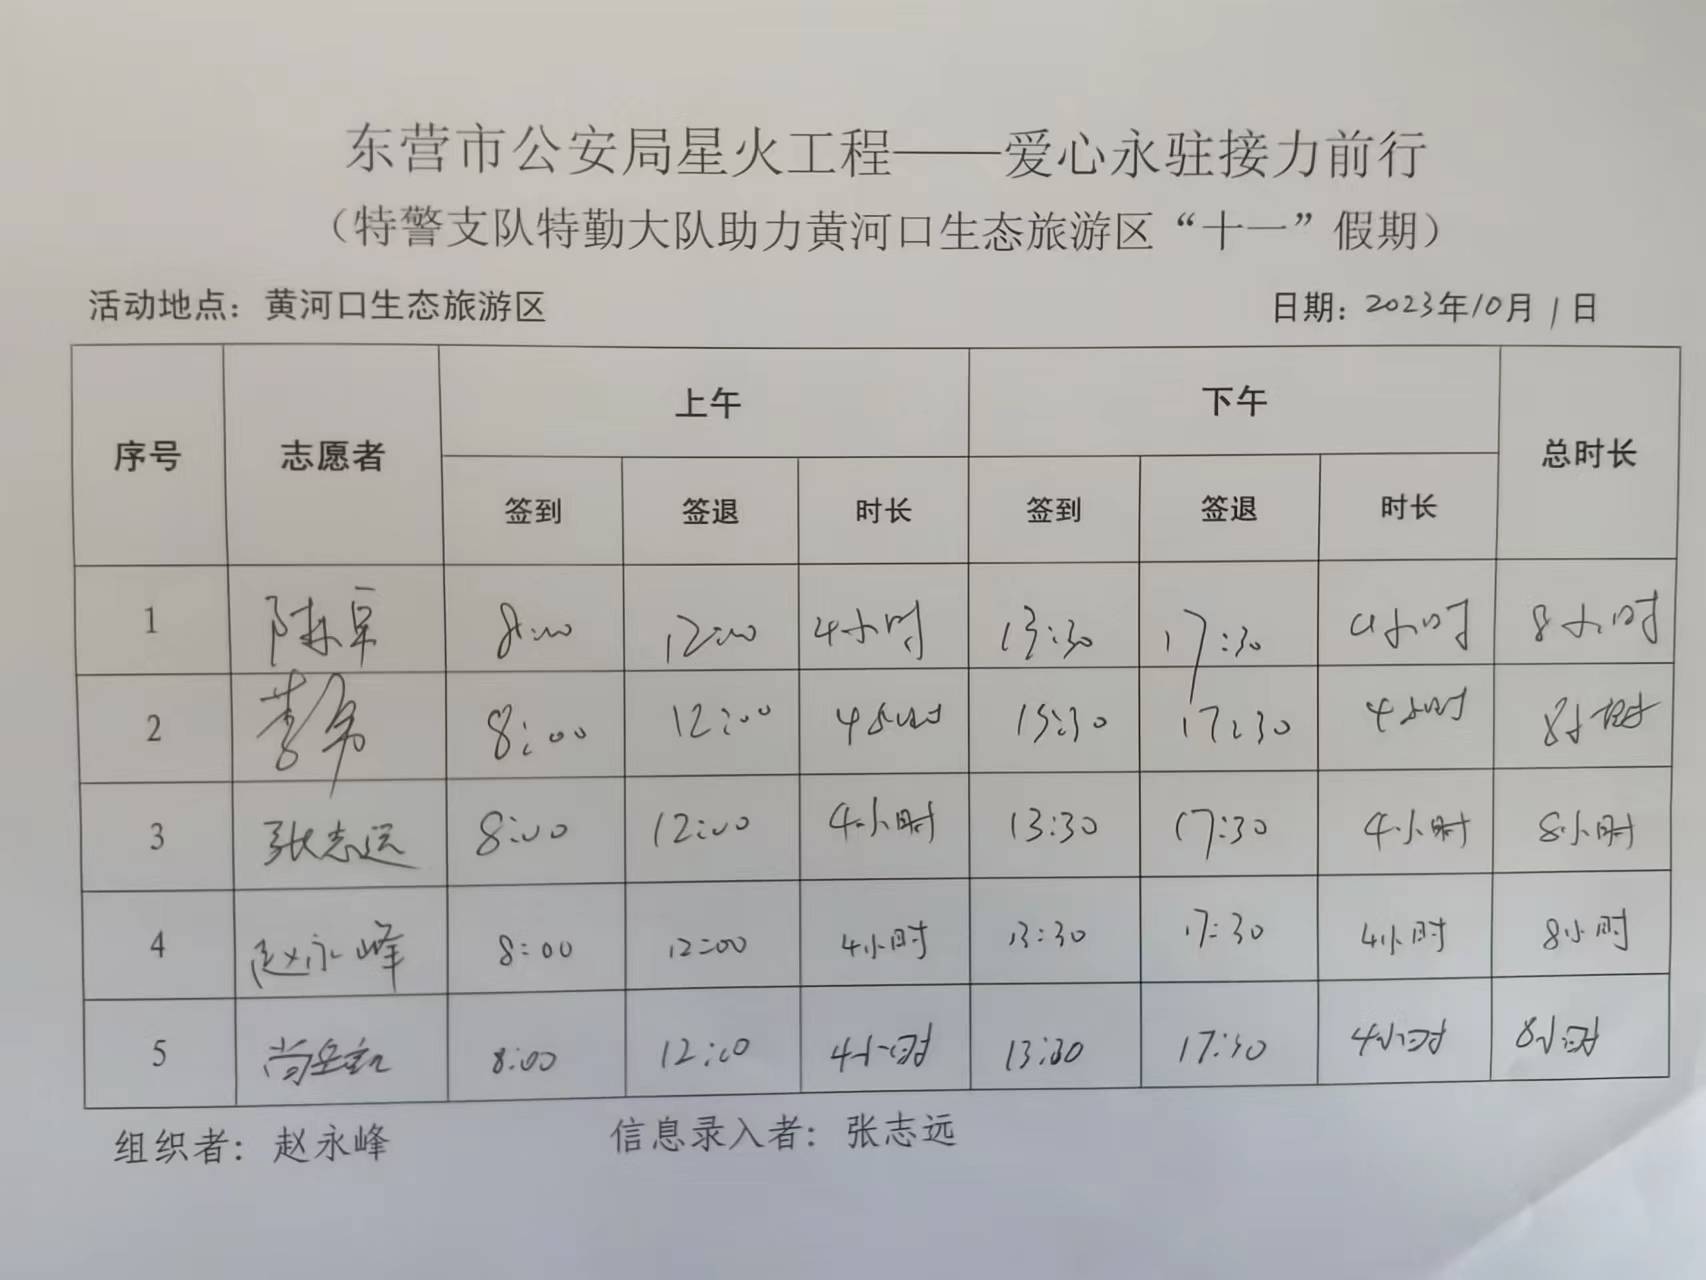 东营市公安局星火工程——爱心永驻接力前行
（特警支队特勤大队助力黄河口生态旅游区“十一”假期）
活动地点：黄河口生态旅游区 日期：2023年10月1日
序号 志愿者 上午 下午 总时长
签到 签退 时长 签到 签退 时长
1 8:00 12:00 4小时 13:30 17:30 4小时 8小时
2 8:00 12:00 4小时 13:30 17:30 4小时 8小时
3 张志远 8:00 12:00 4小时 13:30 17:30 4小时 8小时
4 赵永峰 8:00 12:00 4小时 13:30 17:30 4小时 8小时
5 8:00 12:00 4小时 13:30 17:30 4小时 8小时
组织者：赵永峰 信息录入者：张志远